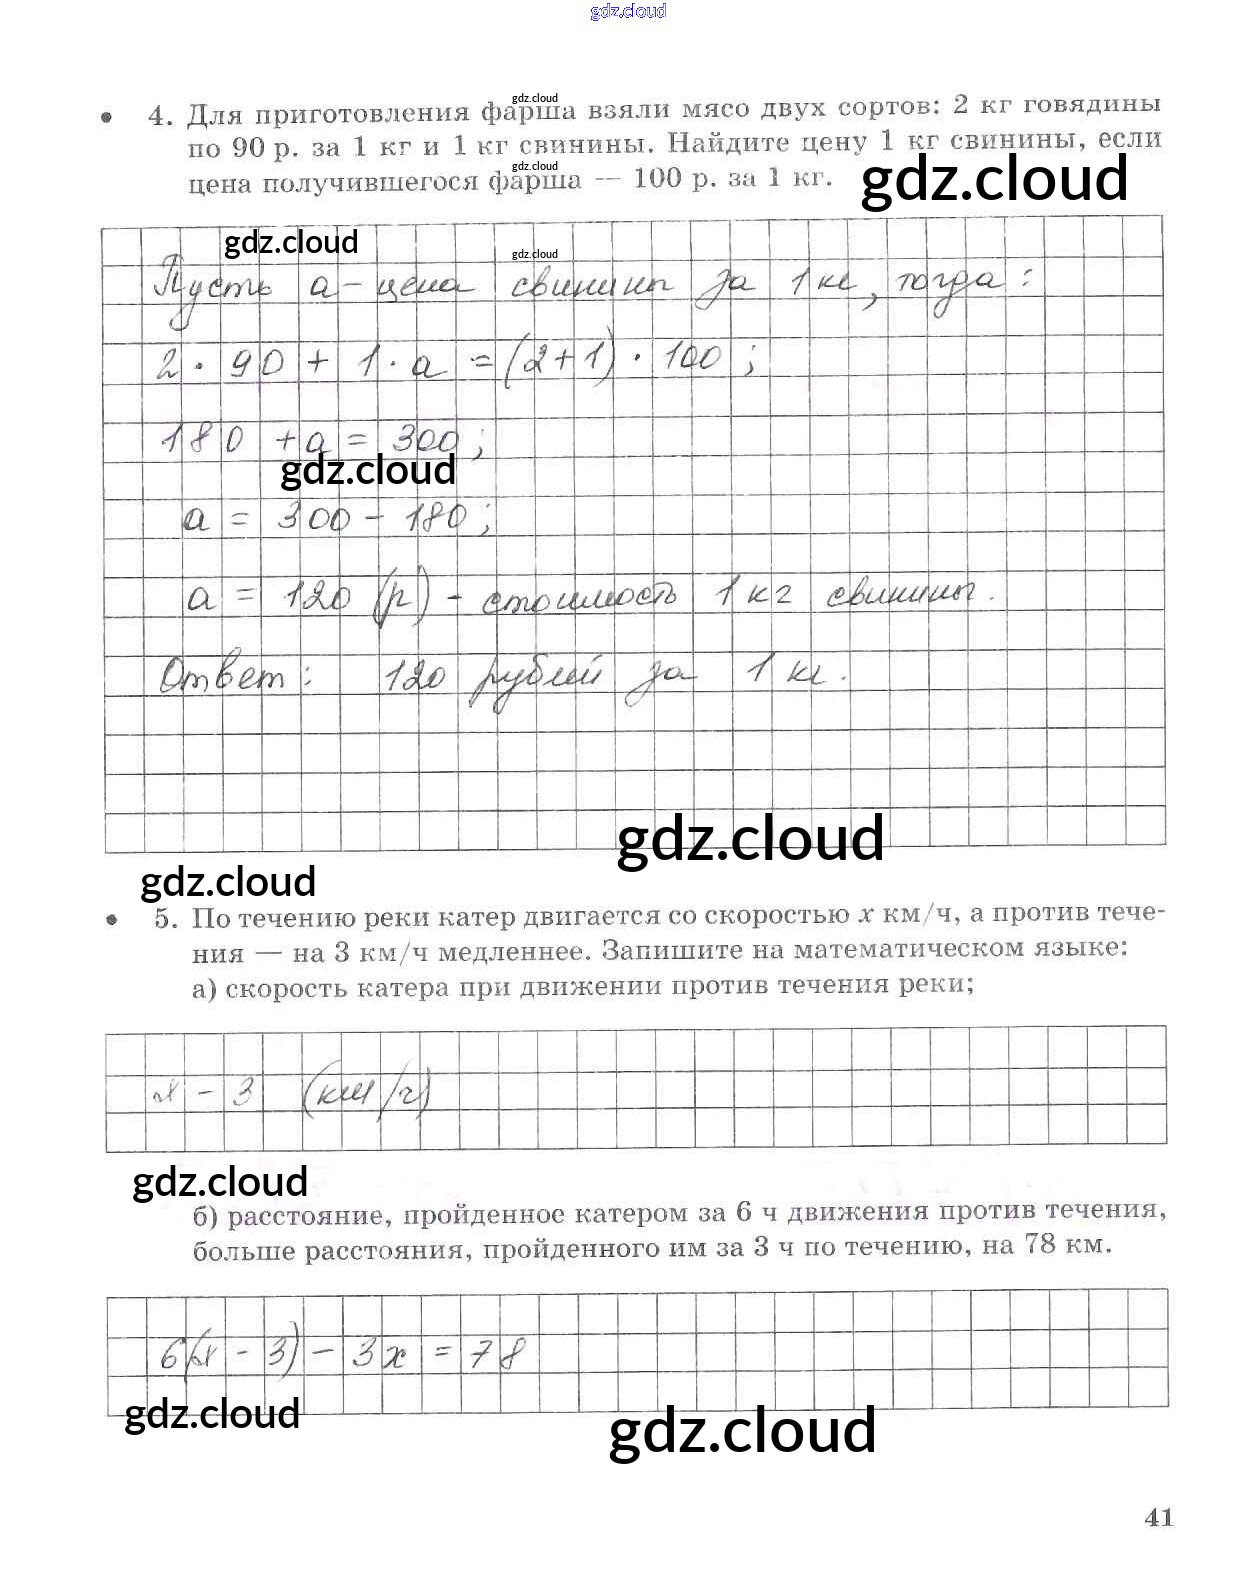 gdz.cloud
gdz.cloud
4. Для приготовления фарша взяли мясо двух сортов: 2 кг говядины
по 90 р. за 1 кг и 1 кг свинины. Найдите цену 1 кг свинины, если
gdz.cloud
цена получившегося фарша — 100 р. за 1 кг.
gdz.cloud
gdz.cloud
gdz.cloud
Пусть a - цена свинины за 1 кг, тогда:
2 · 90 + 1 · a = (2+1) · 100;
180 + a = 300;
gdz.cloud
a = 300 - 180;
a = 120 (р) - стоимость 1 кг свинины.
Ответ: 120 рублей за 1 кг.
gdz.cloud
gdz.cloud
5. По течению реки катер двигается со скоростью x км/ч, а против тече-
ния — на 3 км/ч медленнее. Запишите на математическом языке:
а) скорость катера при движении против течения реки;
x - 3 (км/ч)
gdz.cloud
б) расстояние, пройденное катером за 6 ч движения против течения,
больше расстояния, пройденного им за 3 ч по течению, на 78 км.
6(x - 3) - 3x = 78
gdz.cloud
gdz.cloud
41